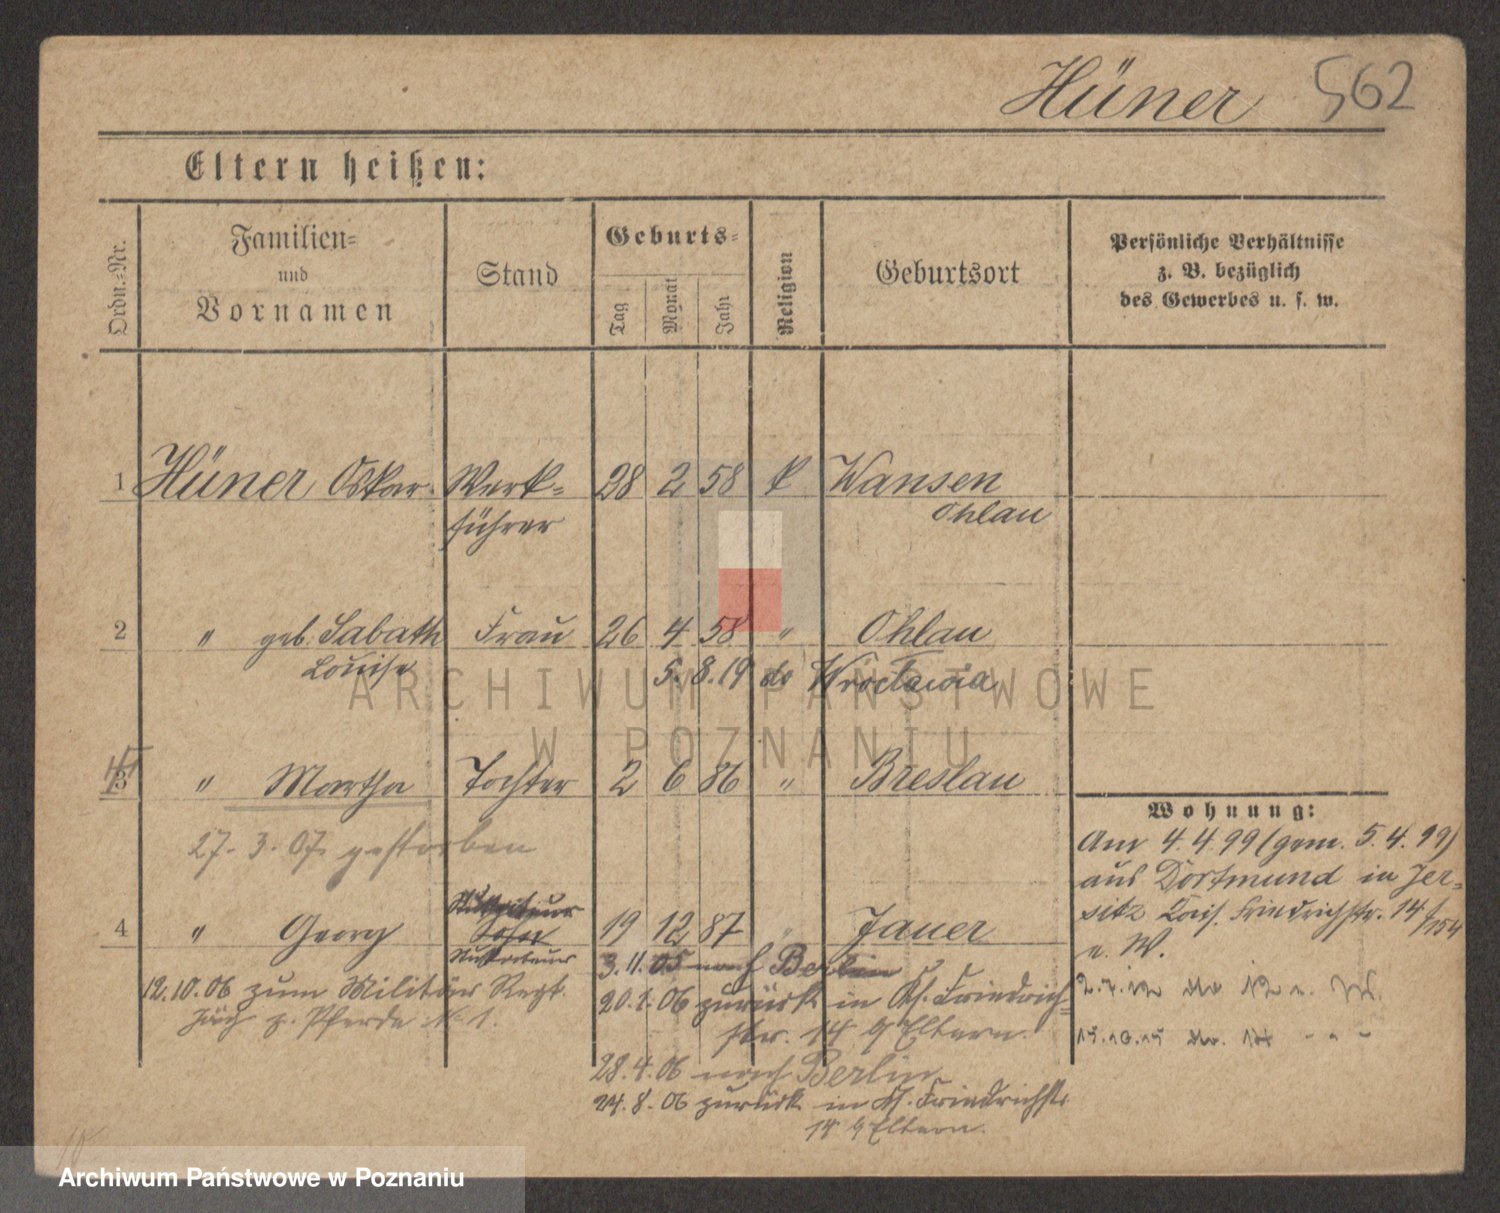 Hüner 562
Eltern heißen:
Ordn.-Nr.
Familien-
und
Vornamen
Stand
Geburts-
Tag
Monat
Jahr
Religion
Geburtsort
Persönliche Verhältnisse
z. B. bezüglich
des Gewerbes u. s. w.
1 Hüner Oskar Werk- 28 2 58 k Wansen
führer Ohlau
2 " geb. Sabath Frau 26 4 58 " Ohlau
Louise 5. 8. 19 do Wrocławia
ARCHIWUM PAŃSTWOWE
W POZNANIU
3 " Martha Tochter 2 6 86 " Breslau
27. 3. 07. gestorben
4 " Georg Sohn 19 12 87 " Jauer
3. 11. 05 nach Berlin
12. 10. 06 zum Militär Regt.
Jäg z. Pferde No 1.
20. 1. 06 zurück in Ks. Friedrich-
str. 14 b/Eltern.
28. 4. 06 nach Berlin
24. 8. 06 zurück in Ks. Friedrichstr
14 b/Eltern.
Wohnung:
Am 4. 4. 99 (gem. 5. 4. 99)
aus Dortmund in Jer-
sitz Kais. Friedrichstr. 14/
e. W.
Archiwum Państwowe w Poznaniu